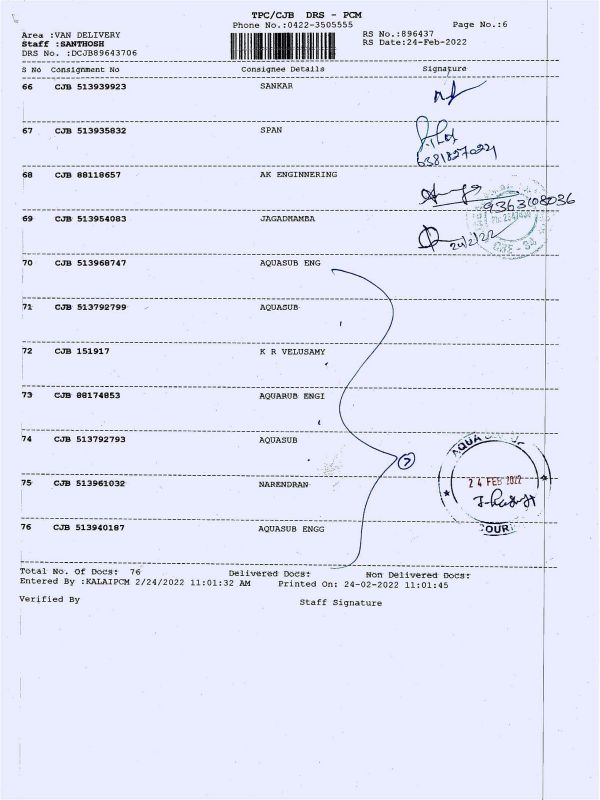 TPC/CJB DRS - PCM
Phone No.:0422-3505555
Page No.:6
Area :VAN DELIVERY
RS No.:896437
Staff :SANTHOSH
RS Date:24-Feb-2022
DRS No. :DCJB89643706
S No Consignment No Consignee Details Signature
66 CJB 513939923 SANKAR
67 CJB 513935832 SPAN
6381827024
68 CJB 88118657 AK ENGINNERING
9363108036
69 CJB 513954083 JAGADHAMBA
24/2/22
70 CJB 513968747 AQUASUB ENG
71 CJB 513792799 AQUASUB
72 CJB 151917 K R VELUSAMY
73 CJB 88174853 AQUARUB ENGI
74 CJB 513792793 AQUASUB
7
AQUA
75 CJB 513961032 NARENDRAN
24 FEB 2022
76 CJB 513940187 AQUASUB ENGG
COURI
Total No. Of Docs: 76 Delivered Docs: Non Delivered Docs:
Entered By :KALAIPCM 2/24/2022 11:01:32 AM Printed On: 24-02-2022 11:01:45
Verified By Staff Signature